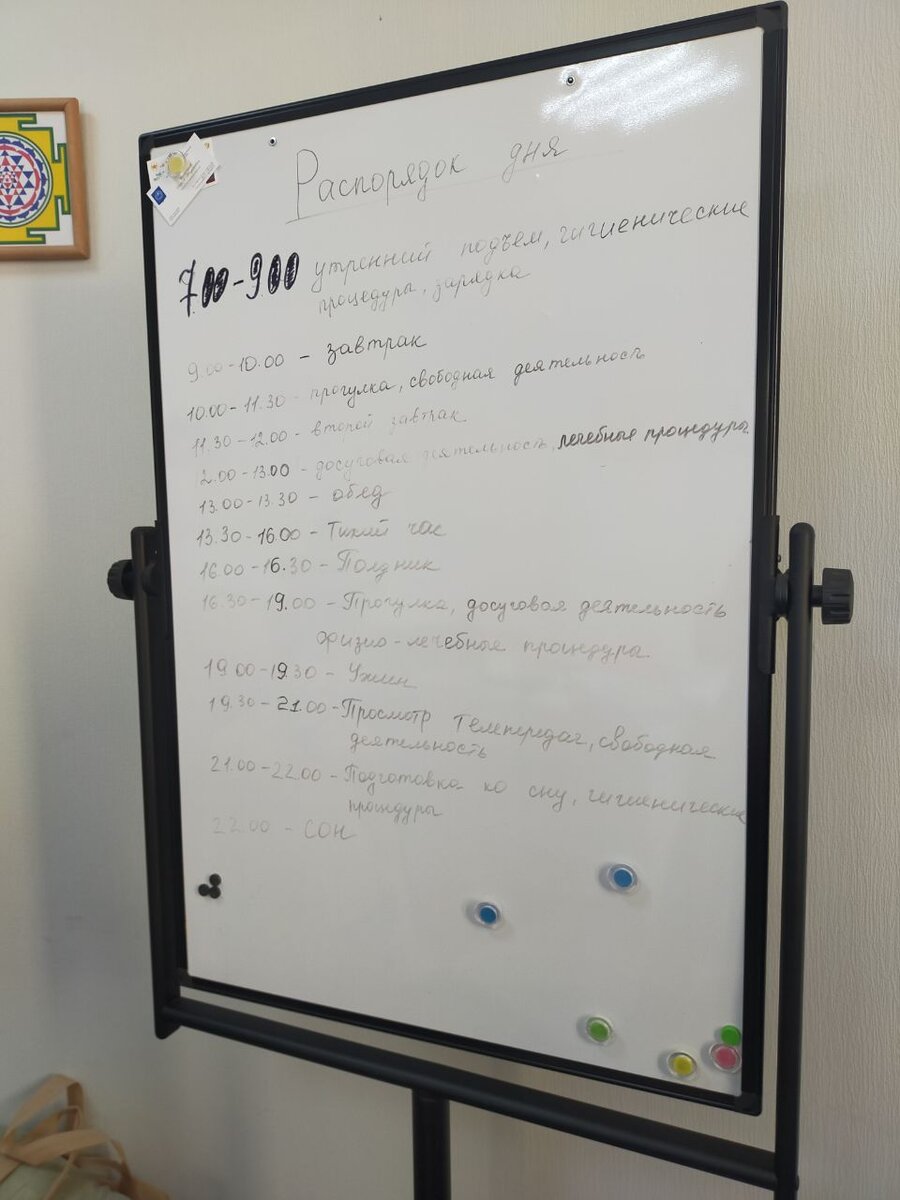 Распорядок дня
7.00-9.00 утренний подъем, гигиенические
процедуры, зарядка
9.00-10.00 - завтрак
10.00-11.30 - прогулка, свободная деятельность
11.30-12.00 - второй завтрак
12.00-13.00 - досуговая деятельность, лечебные процедуры
13.00-13.30 - обед
13.30-16.00 - Тихий час
16.00-16.30 - Полдник
16.30-19.00 - Прогулка, досуговая деятельность
физио-лечебные процедура
19.00-19.30 - Ужин
19.30-21.00 - Просмотр телепередач, свободная
деятельность
21.00-22.00 - Подготовка ко сну, гигиенические
процедуры
22.00 - сон